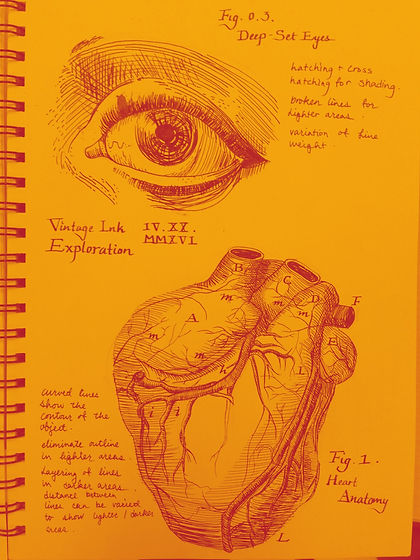 Fig. 0.3.
Deep-Set Eyes
hatching + cross
hatching for shading.
broken lines for
lighter areas.
variation of line
weight.
Vintage Ink
Exploration
IV.XX.
MMXVI
B
C
D
F
m
m
A
E
m
m
h
L
i
i
curved lines
show the
contour of the
object.
eliminate outline
in lighter areas.
layering of lines
in darker areas.
distance between
lines can be varied
to show lighter/darker
areas.
Fig. 1.
Heart
Anatomy
L